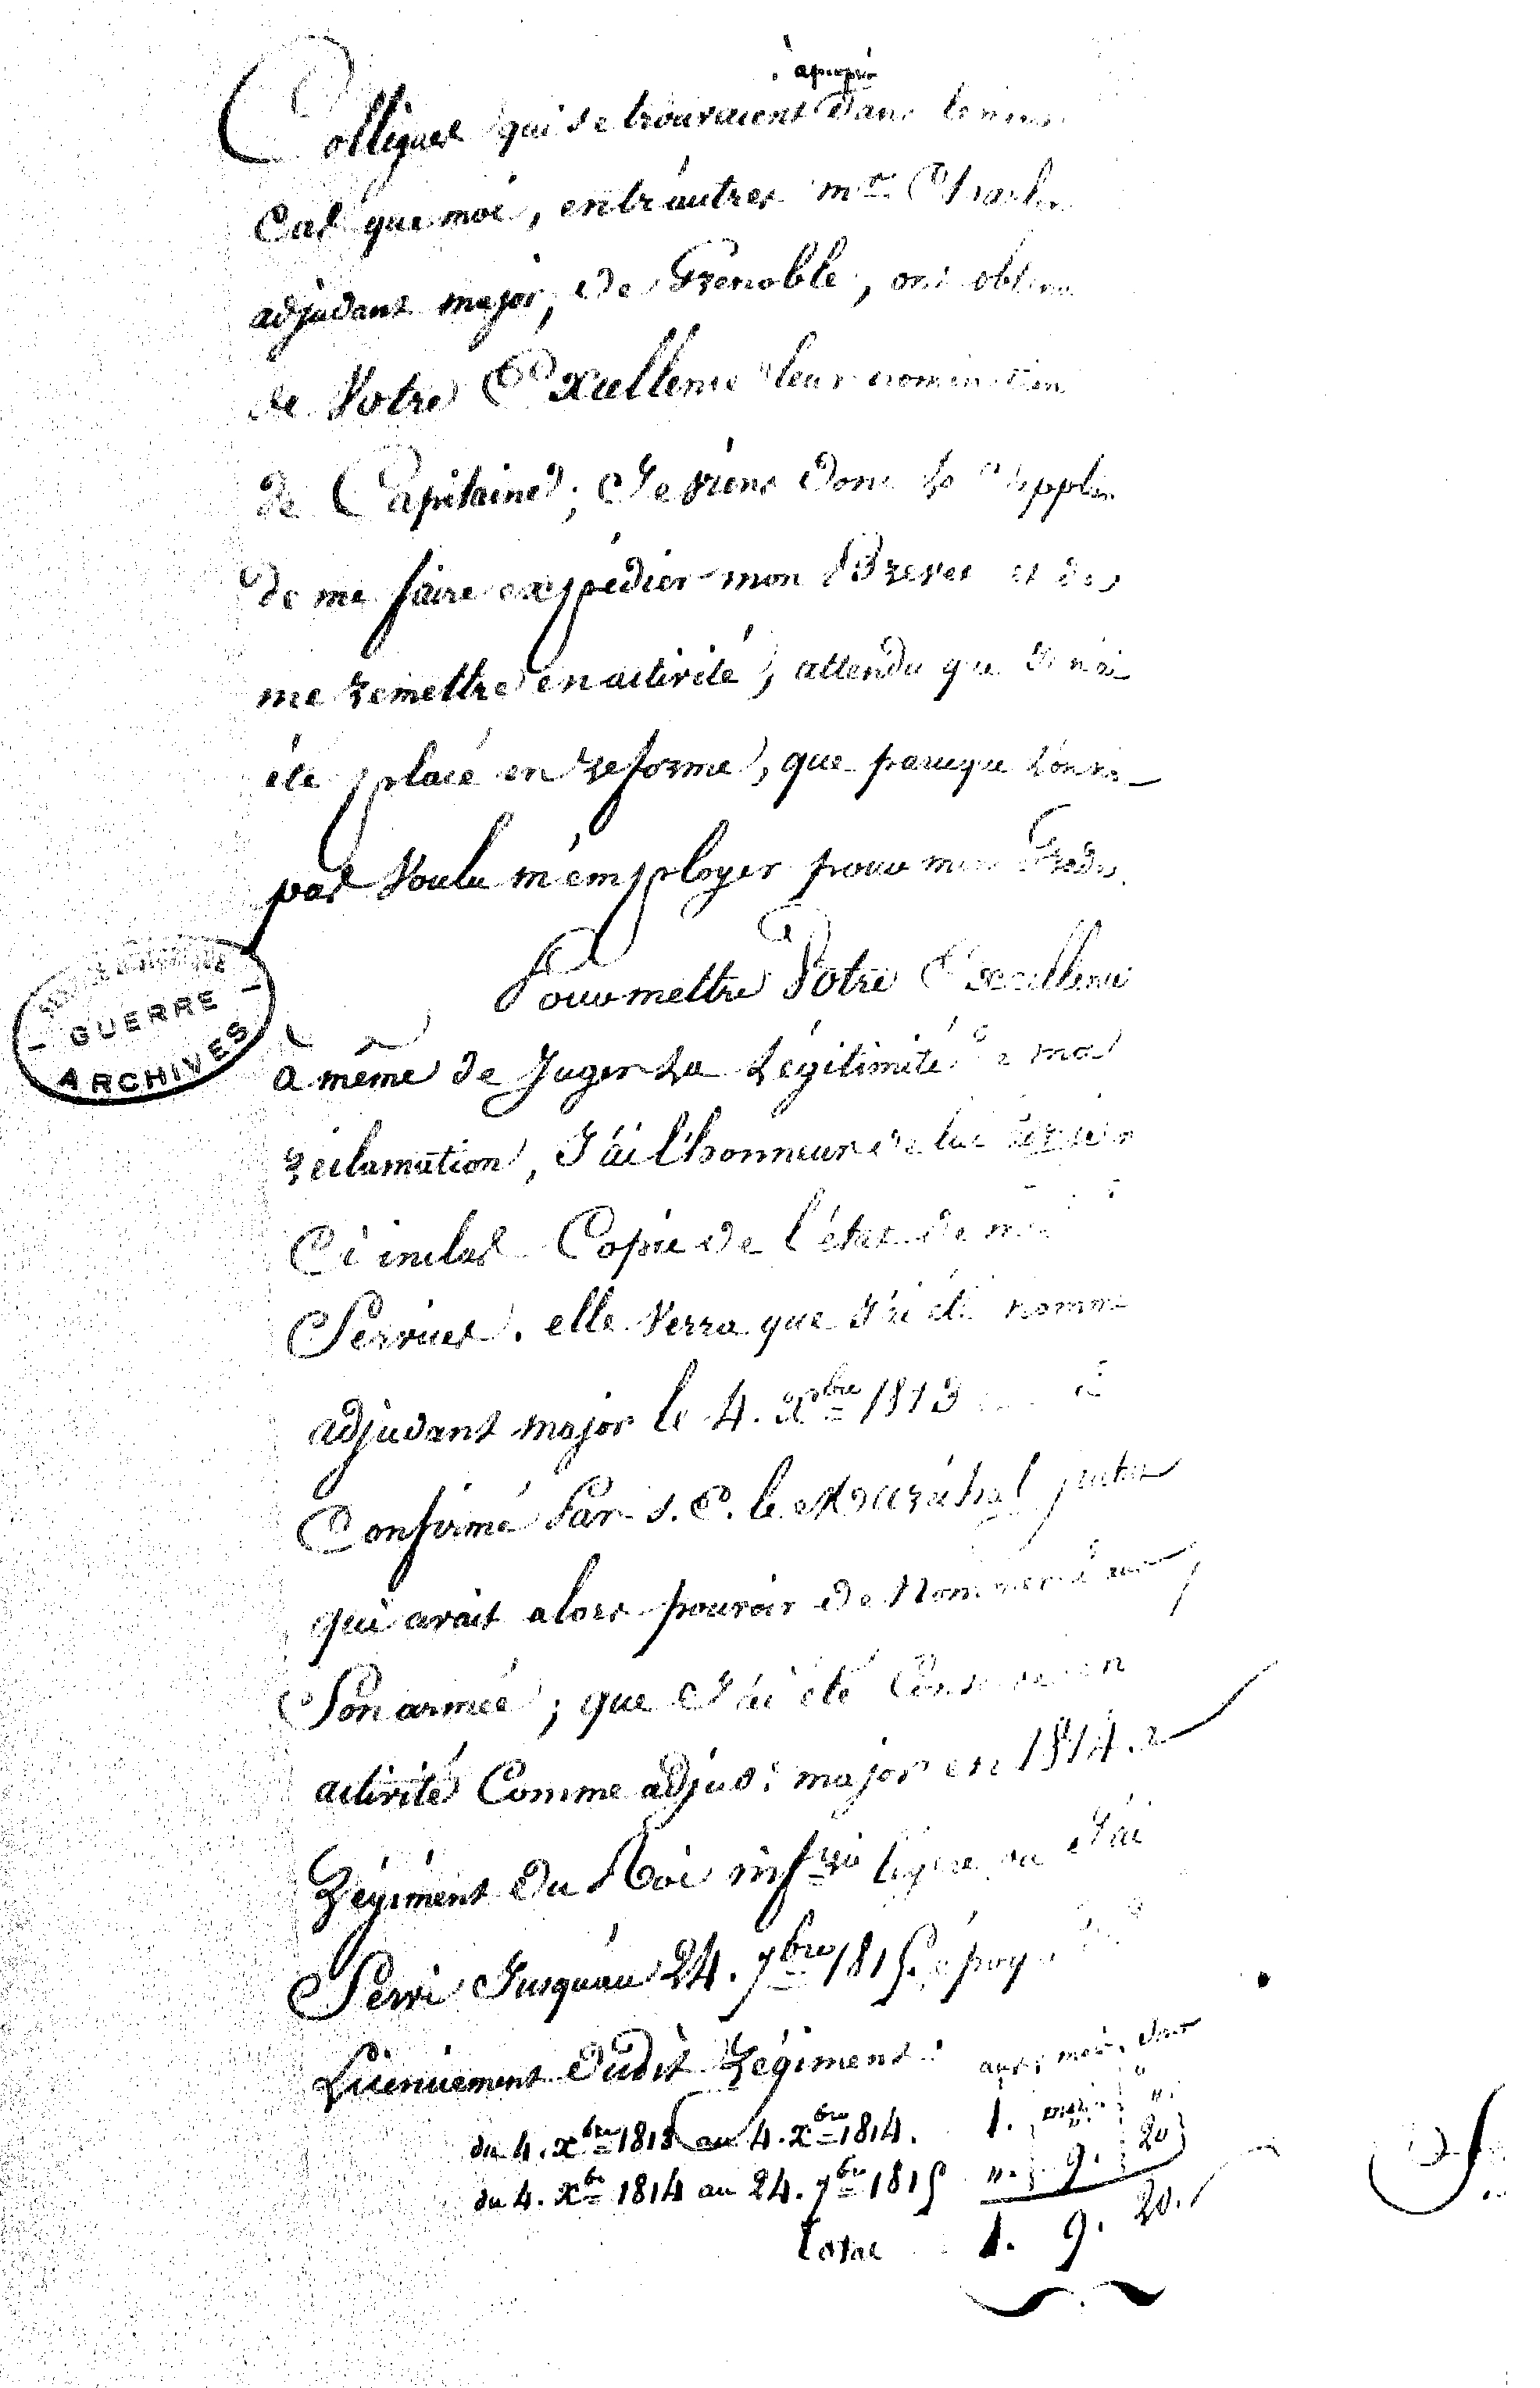 àpeuprès
Collegues qui se trouvaient dans le même
Cas que moi, entr'autres mr. Charles
adjudant major, de Grenoble, ont obtenu
de Votre Excellence leur nomination
de Capitaine; Je viens donc la supplier
de me faire expédier mon Brevet et de
me remettre en activité, attendu que Je n'ai
été placé en réforme, que parceque l'on n'a
pas Voulu m'employer pour mon Grade.
Pour mettre Votre Excellence
à même de Juger La Légitimité de ma
réclamation, J'ai l'honneur de lui
Ci inclus Copie de l'état de mes
Services. elle Verra que J'ai été nommé
adjudant major le 4. Xbre 1813
Confirmé Par S. E. le Maréchal Suchet
qui avait alors pouvoir de Nommer à
Son armée; que J'ai été Conservé en
activité Comme adjud: major en 1814. au
Régiment du Roi infrie légère où J'ai
Servi Jusqu'au 24. 7bre 1815. époque du
Licenciement dudit Régiment.
ans, mois, Jours
du 4. Xbre 1813 au 4. Xbre 1814. 1. " "
du 4. Xbre 1814 au 24. 7bre 1815 ". 9. 20
Total 1. 9. 20.
GUERRE
ARCHIVES